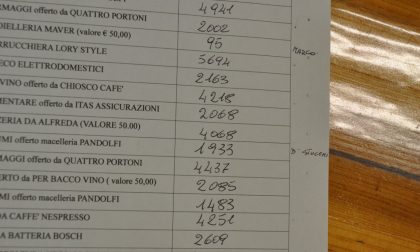 RMAGGI offerto da QUATTRO PORTONI 4941
DIELLERIA MAVER (valore € 50,00) 2002
RRUCCHIERA LORY STYLE 95
ECO ELETTRODOMESTICI 5694 MARCO
VINO offerto da CHIOSCO CAFE' 2163
MENTARE offerto da ITAS ASSICURAZIONI 4218
ERIA DA ALFREDA (VALORE 50,00) 2068
UMI offerto macelleria PANDOLFI 4068
MAGGI offerto da QUATTRO PORTONI 1933
ERTO da PER BACCO VINO ( valore 50,00) 4437
MI offerto macelleria PANDOLFI 2085
DA CAFFE' NESPRESSO 1483
A BATTERIA BOSCH 4251
2609